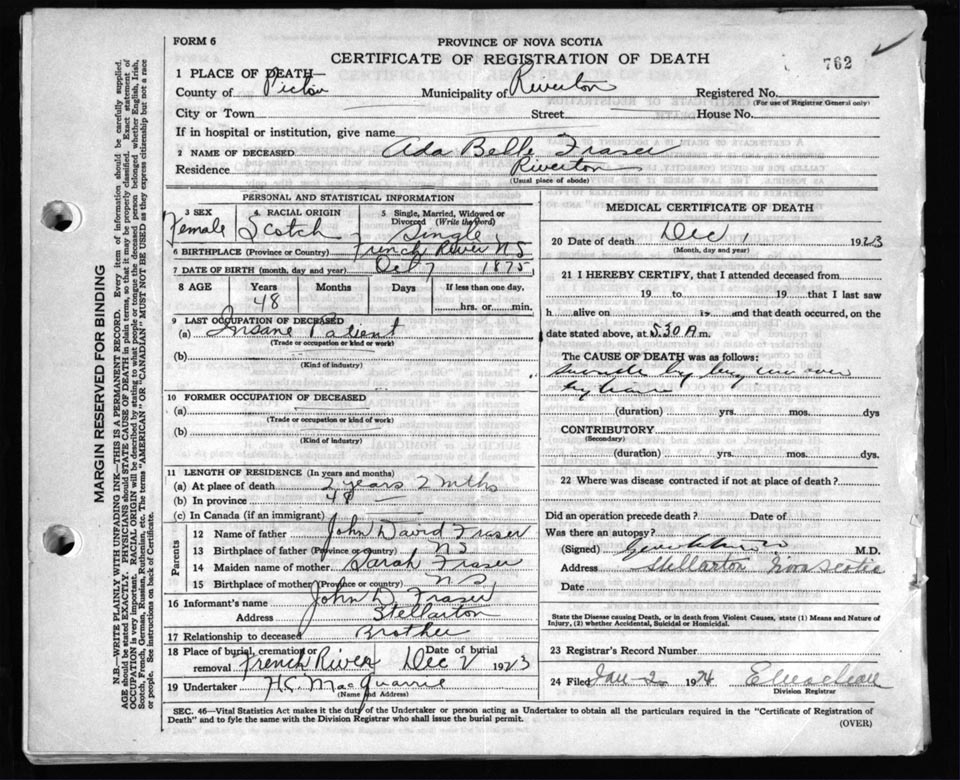 FORM 6
PROVINCE OF NOVA SCOTIA
CERTIFICATE OF REGISTRATION OF DEATH
762
1 PLACE OF DEATH—
County of Pictou Municipality of Riverton Registered No.
(For use of Registrar General only)
City or Town Street House No.
If in hospital or institution, give name
2 NAME OF DECEASED Ada Belle Fraser
Residence Riverton
(Usual place of abode)
PERSONAL AND STATISTICAL INFORMATION
3 SEX 4 RACIAL ORIGIN 5 Single, Married, Widowed or Divorced (Write the word)
Female Scotch Single
6 BIRTHPLACE (Province or Country) French River NS
7 DATE OF BIRTH (month, day and year) Oct 7 1875
8 AGE Years Months Days If less than one day,
48 hrs. or min.
9 LAST OCCUPATION OF DECEASED
(a) Insane Patient
(Trade or occupation or kind or work)
(b)
(Kind of industry)
10 FORMER OCCUPATION OF DECEASED
(a)
(Trade or occupation or kind of work)
(b)
(Kind of industry)
11 LENGTH OF RESIDENCE (In years and months)
(a) At place of death 2 years 2 mths
(b) In province 48 —
(c) In Canada (if an immigrant)
Parents
12 Name of father John David Fraser
13 Birthplace of father (Province or country) NS
14 Maiden name of mother Sarah Fraser
15 Birthplace of mother (Province or country) NS
16 Informant's name John D Fraser
Address Stellarton
17 Relationship to deceased Brother
18 Place of burial, cremation or removal French River Date of burial Dec 2 1923
19 Undertaker H.C. MacQuarrie
(Name and Address)
MEDICAL CERTIFICATE OF DEATH
20 Date of death Dec 1 1923
(Month, day and year)
21 I HEREBY CERTIFY, that I attended deceased from
19 to 19 that I last saw
h alive on 19 and that death occurred, on the
date stated above, at 5.30 A m.
The CAUSE OF DEATH was as follows:
by being run over
by train
(duration) yrs. mos. dys
CONTRIBUTORY
(Secondary)
(duration) yrs. mos. dys
22 Where was disease contracted if not at place of death?
Did an operation precede death? Date of
Was there an autopsy?
(Signed) M.D.
Address Stellarton Nova Scotia
Date
State the Disease causing Death, or in death from Violent Causes, state (1) Means and Nature of Injury, (2) whether Accidental, Suicidal or Homicidal.
23 Registrar's Record Number
24 Filed Jan 2 1924
Division Registrar
SEC. 46—Vital Statistics Act makes it the duty of the Undertaker or person acting as Undertaker to obtain all the particulars required in the "Certificate of Registration of
Death" and to fyle the same with the Division Registrar who shall issue the burial permit.
(OVER)
MARGIN RESERVED FOR BINDING
N.B.—WRITE PLAINLY WITH UNFADING INK—THIS IS A PERMANENT RECORD. Every item of information should be carefully supplied.
AGE should be stated EXACTLY. PHYSICIANS should STATE CAUSE OF DEATH in plain terms, so that it may be properly classified. Exact statement of
OCCUPATION is very important. RACIAL ORIGIN will be described by stating to what people or tongue the deceased person belonged whether English, Irish,
Scotch, French, German, Russian, Ruthenian, etc. The terms "AMERICAN" OR "CANADIAN" MUST NOT BE USED as they express citizenship but not a race
or people. See instructions on back of Certificate.